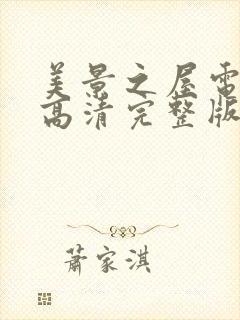 美景之屋电
高清完整版
萧家淇